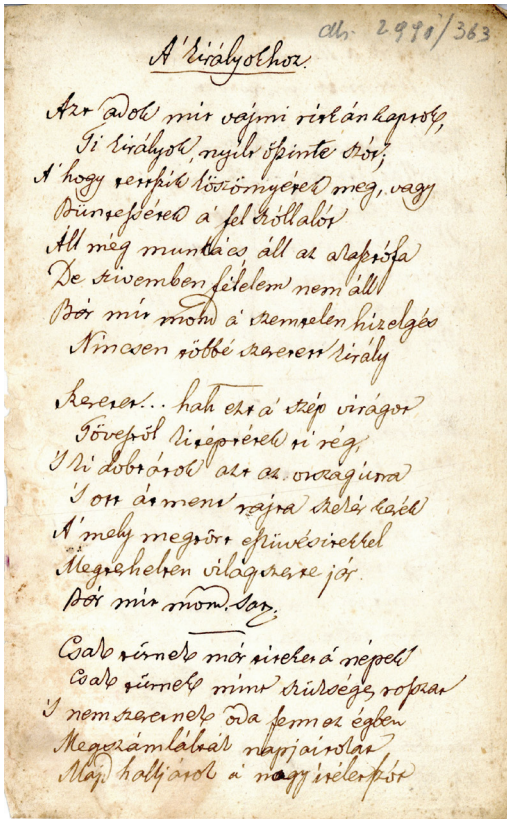 dtr. 2990/363
A' királyokhoz.
Azt adok mit vajmi ritkán kaptok,
Ti királyok, nyilt őszinte szót;
A' hogy tetszik köszönnyétek meg, vagy
Büntessétek a' fel szóllalót
Áll még munkács áll az akasztófa
De szivemben félelem nem áll
Bár mit mond a' szemtelen hizelgés
Nincsen többé szeretett király
Szeretet... hah ezt a' szép virágot
Tövestől kitéptétek ti rég,
'S ki dobtátok azt az országútra
'S ott átment rajta szekér kerék
A' mely megtört esküvéstekkel
Megterhelten világszerte jár.
Bár mit mond. satz.
Csak türnek már titeket a' népek
Csak türnek mint szükséges roszat
'S nem szeretnek oda fenn ez égben
Megszámlálták napjaitokat
Majd halljátok a' nagy itéletszót